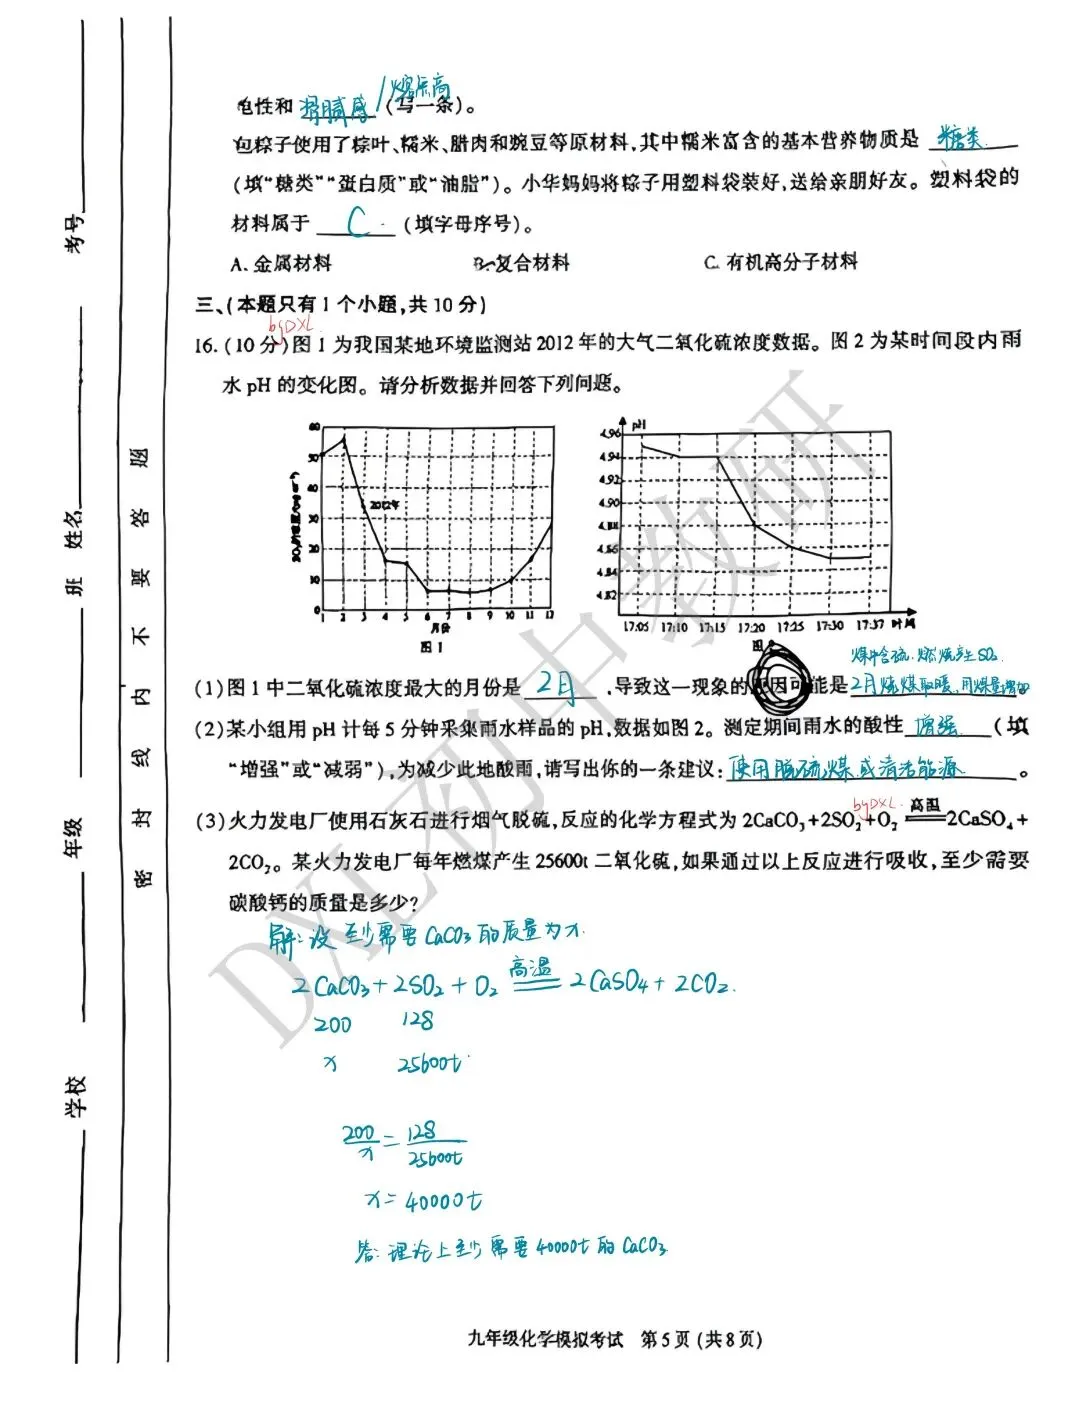 电性和 滑腻感/熔点高 (写一条)。
包粽子使用了粽叶、糯米、腊肉和豌豆等原材料,其中糯米富含的基本营养物质是 糖类
(填“糖类”“蛋白质”或“油脂”)。小华妈妈将粽子用塑料袋装好,送给亲朋好友。塑料袋的
材料属于 C (填字母序号)。
A. 金属材料 B. 复合材料 C. 有机高分子材料
三、(本题只有1个小题,共10分)
byDXL
16. (10分)图1为我国某地环境监测站2012年的大气二氧化硫浓度数据。图2为某时间段内雨
水pH的变化图。请分析数据并回答下列问题。
60
50
40
30
20
10
0
2012年
1 2 3 4 5 6 7 8 9 10 11 12
月份
图1
pH
4.96
4.94
4.92
4.90
4.88
4.86
4.84
4.82
17:05 17:10 17:15 17:20 17:25 17:30 17:37 时间
煤中含硫,燃烧产生SO₂
(1)图1中二氧化硫浓度最大的月份是 2月 ,导致这一现象的原因可能是 2月烧煤取暖,用煤量增加
(2)某小组用pH计每5分钟采集雨水样品的pH,数据如图2。测定期间雨水的酸性 增强 (填
“增强”或“减弱”),为减少此地酸雨,请写出你的一条建议: 使用脱硫煤或清洁能源 。
byDXL
(3)火力发电厂使用石灰石进行烟气脱硫,反应的化学方程式为2CaCO₃+2SO₂+O₂ 高温 2CaSO₄+
2CO₂。某火力发电厂每年燃煤产生25600t二氧化硫,如果通过以上反应进行吸收,至少需要
碳酸钙的质量是多少?
解:设至少需要CaCO₃的质量为x.
2CaCO₃+2SO₂+O₂ 高温 2CaSO₄+2CO₂.
200 128
x 25600t
200/x=128/25600t
x=40000t
答:理论上至少需要40000t的CaCO₃
九年级化学模拟考试 第5页(共8页)
考号
姓名
班
年级
学校
密封线内不要答题
DXL初中教研